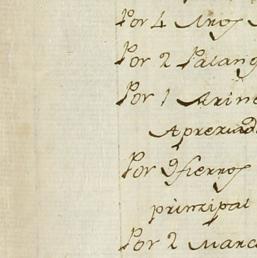 Por 4 Aros
Por 2 Palang
Por 1
Apreziad
Por 9 fierros
principal
Por 2 Marc